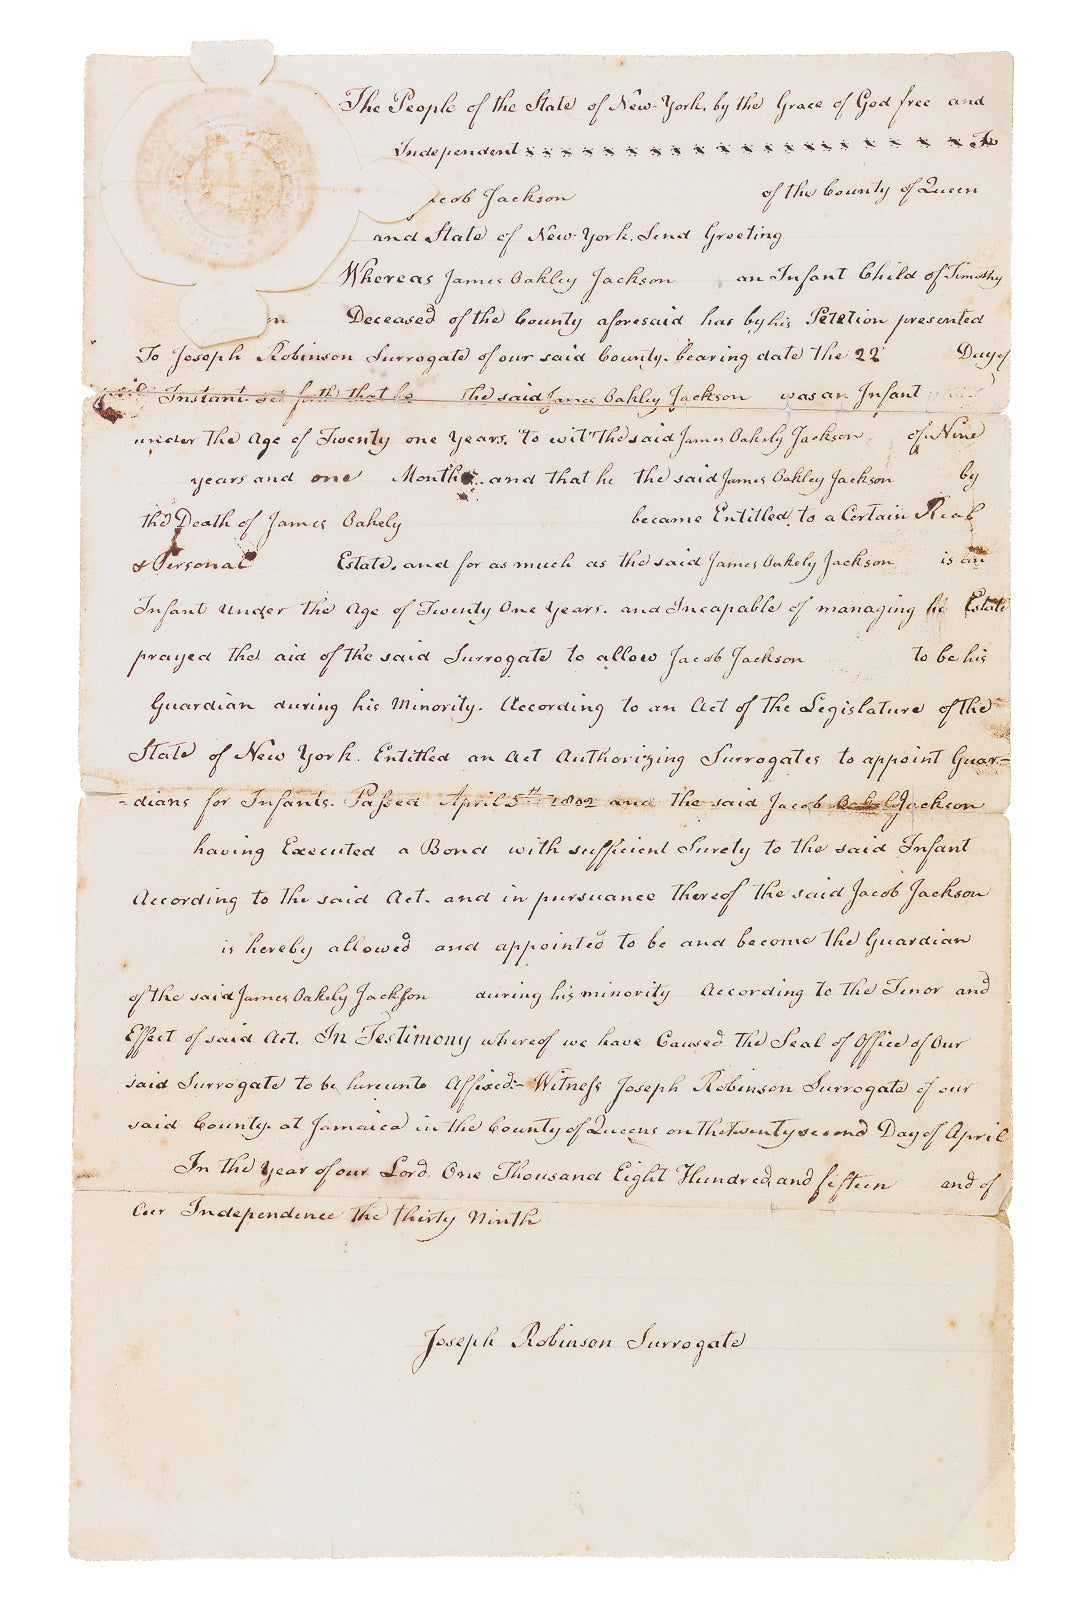 The People of the State of New-York. by the Grace of God free and
Independent x x x x x x x x x x x x x x x x x x x x x To
cob Jackson of the County of Queen
and State of New York. Send Greeting
Whereas James Oakley Jackson an Infant Child of Timothy
on Deceased of the County aforesaid has by his Petetion presented
To Joseph Robinson Surrogate of our said County. bearing date the 22 Day of
Instant. set forth that he the said James Oakley Jackson was an Infant
under the Age of Twenty one Years. to wit" the said James Oakely Jackson of Nine
years and one Months. and that he the said James Oakley Jackson by
the Death of James Oakely became Entitled, to a Certain Real
& Personal Estate. and for as much as the said James Oakely Jackson is an
Infant Under the Age of Twenty One Years. and Incapable of managing his Estate
prayed the aid of the said Surrogate to allow Jacob Jackson to be his
Guardian during his Minority. According to an Act of the Legislature of the
State of New York. Entitled an Act Authorizing Surrogates to appoint Guar-
-dians for Infants. Passed April 5th 1802 and the said Jacob Jackson
having Executed a Bond with sufficient Surety to the said Infant
According to the said Act. and in pursuance thereof the said Jacob Jackson
is hereby allowed and appointed to be and become the Guardian
of the said James Oakely Jackson during his minority According to the Tenor and
Effect of said Act. In Testimony whereof we have Caused the Seal of Office of Our
said Surrogate to be hereunto Affixed:- Witness Joseph Robinson Surrogate of our
said County. at Jamaica in the County of Queens on the twenty second Day of April
In the Year of our Lord. One Thousand Eight Hundred and fifteen and of
Our Independence the thirty Ninth
Joseph Robinson Surrogate